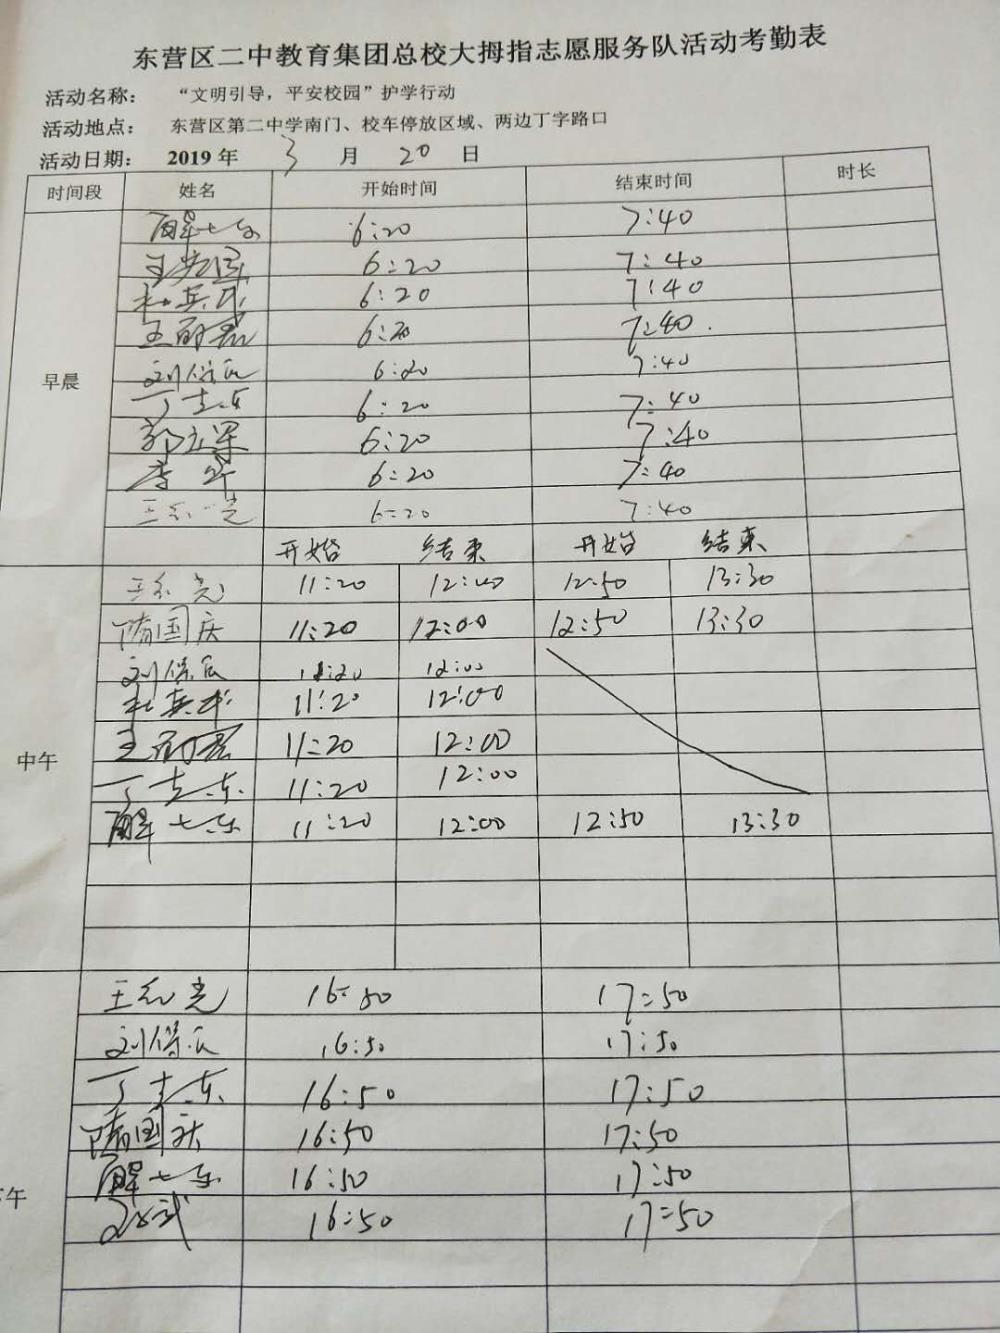 东营区二中教育集团总校大拇指志愿服务队活动考勤表
活动名称： “文明引导，平安校园”护学行动
活动地点： 东营区第二中学南门、校车停放区域、两边丁字路口
活动日期： 2019 年 3 月 20 日
时间段 姓名 开始时间 结束时间 时长
6:20 7:40
6:20 7:40
杜兵武 6:20 7:40
王丽君 6:20 7:40.
早晨 刘保民 6:20 7:40
丁志东 6:20 7:40
郭立军 6:20 7:40
李军 6:20 7:40
6:20 7:40
开始 结束 开始 结束
11:20 12:00 12:50 13:30
隋国庆 11:20 12:00 12:50 13:30
刘保民 11:20 12:00
杜兵武 11:20 12:00
中午 王丽君 11:20 12:00
丁志东 11:20 12:00
11:20 12:00 12:50 13:30
16:50 17:50
刘保民 16:50 17:50
丁志东 16:50 17:50
隋国庆 16:50 17:50
午 16:50 17:50
16:50 17:50